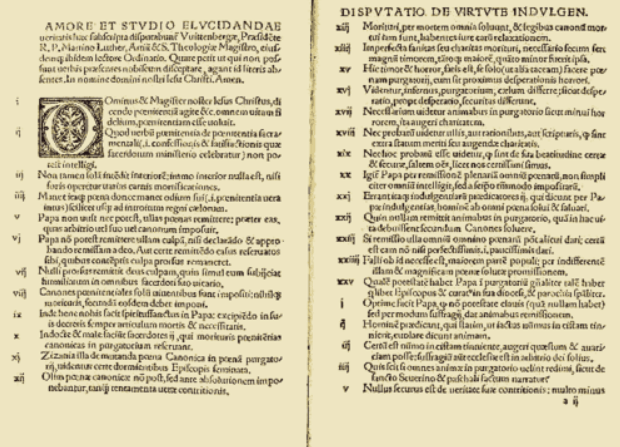 AMORE ET STVDIO ELVCIDANDAE
ueritatis hæc subscripta disputabunť Vuittenbergæ, Præsidẽte
R. P. Martino Luther, Artiũ & S. Theologiæ Magistro, eius-
demq; ibidem lectore Ordinatio. Quare petit ut qui non pos-
sunt uerbis præsentes nobiscum disceptare, agant id literis ab-
sentes. In nomine domini nostri Iesu Christi. Amen.
i Ominus & Magister noster Iesus Christus, di
cendo pœnitentiã agite &c. omnem uitam fi
delium, pœnitentiam esse uoluit.
ij Quod uerbũ pœnitentia de pœnitentia sacra-
mentali (.i. confessionis & satisfactionis quæ
sacerdotum ministerio celebratur) non po-
test intelligi.
iij Non tamen solã intẽdit interiorẽ: immo interior nulla est, nisi
foris operetur uarias carnis mortificationes.
iiij Manet itaq; pœna donec manet odium sui (.i. pœnitentia uera
intus) scilicet usq; ad introitum regni cælorum.
v Papa non uult nec potest, ullas pœnas remittere: præter eas,
quas arbitrio uel suo uel canonum imposuit.
vj Papa nõ potest remittere ullam culpã, nisi declarãdo & appro-
bando remissam a deo. Aut certe remittẽdo casus reseruatos
sibi, quibus contẽptis culpa prorsus remaneret.
vij Nulli prorsus remittit deus culpam, quin simul eum subijciat
humiliatum in omnibus sacerdoti suo uicario.
viij Canones pœnitentiales solũ uiuentibus sunt impositi: nihilq;
morituris, secundũ eosdem debet imponi.
ix Inde bene nobis facit spiritussanctus in Papa: excipiẽdo in su-
is decretis semper articulum mortis & necessitatis.
x Indocte & male faciũt sacerdotes ij, qui morituris pœnitẽtias
canonicas in purgatorium reseruant.
xj Zizania illa de mutanda pœna Canonica in pœnã purgato-
rij, uidentur certe dormientibus Episcopis seminata.
xij Olim pœnæ canonicæ nõ post, sed ante absolutionem impo-
nebantur, tanq̃ tentamenta ueræ contritionis.
DISPVTATIO DE VIRTVTE INDVLGEN.
xiij Morituri, per mortem omnia soluunt, & legibus canonũ mor-
tui iam sunt, habentes iure earũ relaxationem.
xiiij Imperfecta sanitas seu charitas morituri, necessario secum fert
magnũ timorem, tãtoq; maiorẽ, quãto minor fuerit ipsa.
xv Hic timor & horror, satis est, se solo (ut alia taceam) facere pœ-
nam purgatorij, cum sit proximus desperationis horrori.
xvj Videntur, infernus, purgatorium, cælum differre: sicut despe-
ratio, prope desperatio, securitas differunt.
xvij Necessarium uidetur animabus in purgatorio sicut minui hor-
rorem, ita augeri charitatem.
xviij Nec probatũ uidetur ullis, aut rationibus, aut scripturis, q̃ sint
extra statum meriti seu augendæ charitatis.
xix Nec hoc probatũ esse uidetur, q̃ sint de sua beatitudine certæ
& securæ, saltem oẽs, licet nos certissimi simus.
xx Igit̃ Papa per remissionẽ plenariã omniũ pœnarũ, non simpli
citer omniũ intelligit, sed a seipso tm̃modo impositarũ.
xxj Errant itaq; indulgentiarũ prædicatores ij, qui dicunt per Pa-
pæ indulgentias, hominẽ ab omni pœna solui & saluari.
xxij Quin nullam remittit animabus in purgatorio, quã in hac ui-
ta debuissent secundum Canones soluere.
xxiij Si remissio ulla omniũ omnino pœnarũ põt alicui dari; certũ
est eam nõ nisi perfectissimis .i. paucissimis dari.
xxiiij Falli ob id necesse est, maiorem partẽ populi: per indifferentẽ
illam & magnificam pœnæ solutæ promissionem.
xxv Qualẽ potestatẽ habet Papa ĩ purgatoriũ gñaliter talẽ habet
q̃libet Episcopus & curatus in sua diocesi, & parochia spãliter.
i Optime facit Papa, q̃ nõ potestate clauis (quã nullam habet)
sed per modum suffragij, dat animabus remissionem.
ij Hominẽ prædicant, qui statim, ut iactus nũmus in cistam tin-
nierit, euolare dicunt animam.
iij Certũ est nũmo in cistam tinniente, augeri quæstum & auari-
ciam posse: suffragiũ aũt ecclesiæ est in arbitrio dei solius.
iiij Quis scit si omnes animæ in purgatorio uelint redimi, sicut de
sancto Seuerino & paschali factum narratur.
v Nullus securus est de ueritate suæ contritionis; multo minus
a ij